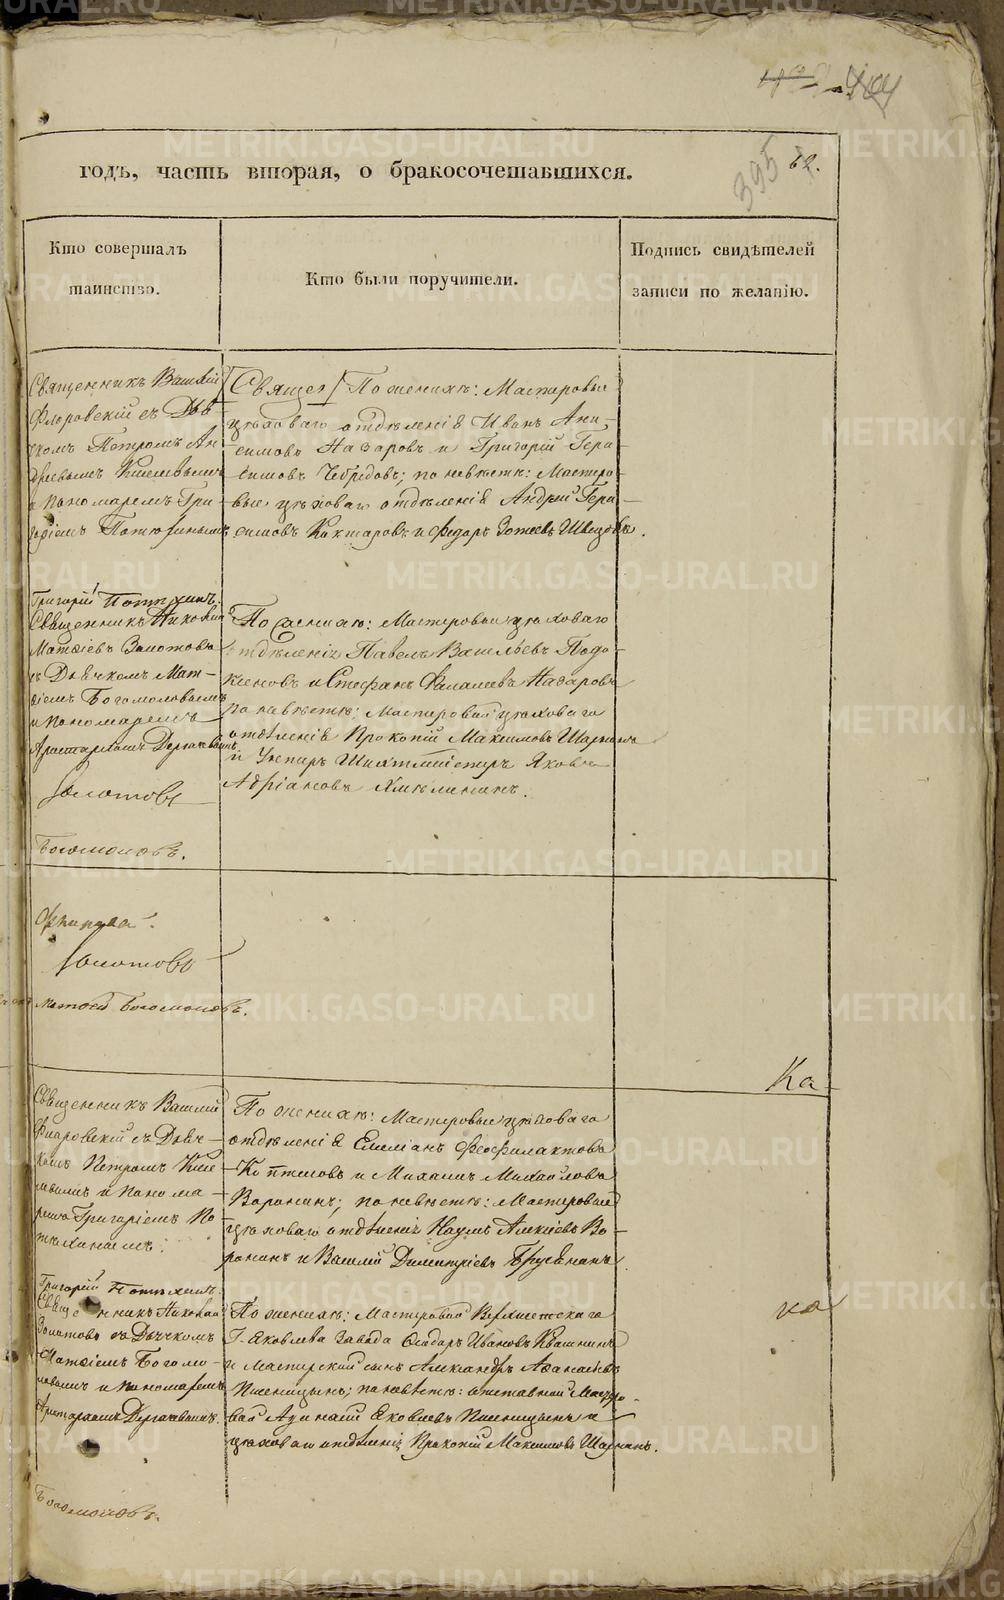 404
395
62.
годъ, часть вторая, о бракосочетавшихся.
Кто совершалъ
таинство.
Кто были поручители.
Подпись свидѣтелей
записи по желанію.
Священникъ Василій
Флоровскій съ Дья
чкомъ Петромъ Ан
дреевымъ Киселевымъ
и Пономаремъ Гри
горіемъ
По женихѣ: Мастеровые
цѣховаго отдѣленія Иванъ Ани
симовъ Назаровъ и Григорій Гера
симовъ по невѣстѣ: Мастеро
вые цѣховаго отдѣленія Андрей Гера
симовъ и Федоръ Зотеевъ Швецовъ.
Григорій Потѣхинъ.
Священникъ Николай
Матвіевъ Золотовъ
съ Дьячкомъ Мат
віемъ Богомоловымъ
и Пономаремъ
Аристархомъ
Золотовъ
Богомоловъ.
По женихѣ: Мастеровые цѣховаго
отдѣленія Павелъ Васильевъ Подо
ксеновъ и Стефанъ Назаровъ
по невѣстѣ: Мастеровой цѣховаго
отдѣленія Прокопій Максимовъ
и Унтеръ Шихтмейстеръ Яковъ
Адріановъ Хмѣлининъ.
Золотовъ
Матвей Богомоловъ.
Ка
Священникъ Василій
Флоровскій съ Дьяч
комъ Петромъ Кисе
левымъ и Понома
ремъ Григоріемъ По
тѣхинымъ.
По женихѣ: Мастеровые цѣховаго
отдѣленія Емеліанъ Феофилактовъ
Коптеловъ и Михаилъ Михайловъ
Воронинъ; по невѣстѣ: Мастеровые
цѣховаго отдѣленія Наумъ Алексіевъ Во
ронинъ и Василій Димитріевъ Брусянинъ.
Григорій Потѣхинъ.
Священникъ Николай
Золотовъ съ Дьячкомъ
Матвіемъ Богомо
ловымъ и Пономаремъ
Аристархомъ
Богомоловъ.
По женихѣ: Мастеровой Верхисетскаго
Г. Яковлева Завода Ѳедоръ Ивановъ Квашнинъ
и Мастерской сынъ Александръ Афанасьевъ
Пшеницынъ; по невѣстѣ: отставной Масте
вой Яковлевъ Пшеницынъ и
цѣховаго отдѣленія Прокопій Максимовъ
ка
METRIKI.GASO-URAL.RU